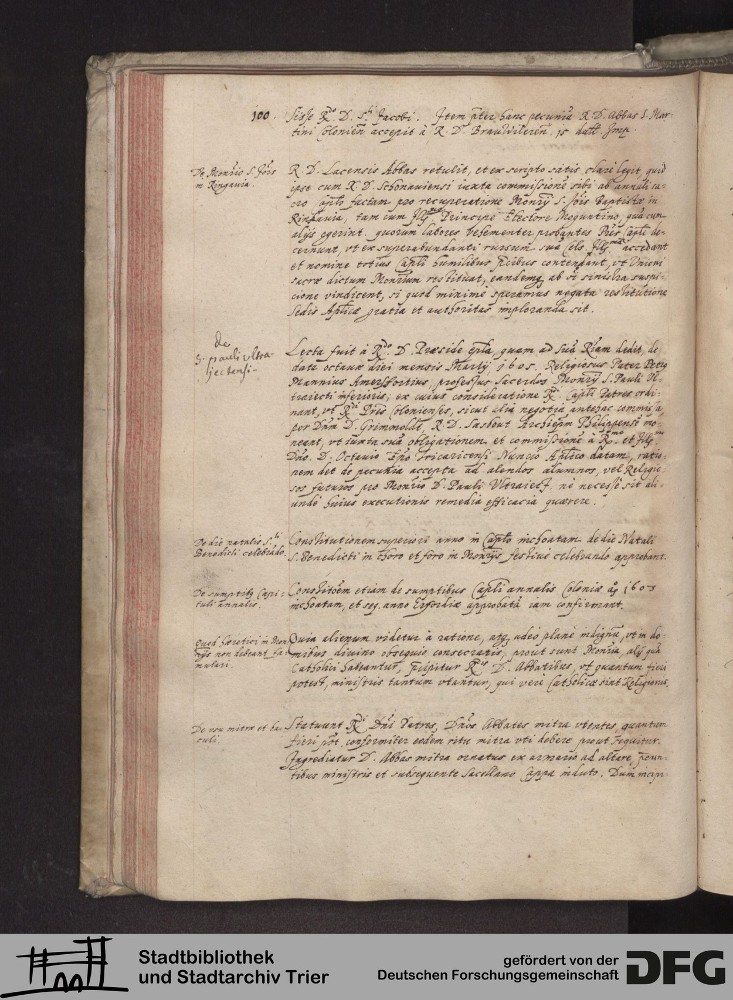 100. sisse R.mo D. S.ti Jacobi. Item pter hanc pecuniā R. D. Abbas S. Mar-
tini Colonien̄ accepit à R. D. Brauwileren̄. 15 dall. Imp.
De Monrio S. Jōis
in Ringauia.
R. D. Lacensis Abbas retulit, et ex scripto satis claré legit, quid
ipse cum R. D. Schonauiensi iuxta commissionē sibi ab annali
Cap̄li factam pro recuperatione Monrÿ S. Jōis Baptistæ in
Ringauia, tam cum Ill.mo Principe Electore Moguntino, quā cum
alijs egerint. quorum labores vehementer probantes P̄res Cap̄li de-
cernunt, vt ex superabundanti rursum suā Cels. Ill.mam accedant
et nomine totius Cap̄li humilibus p̄cibus contendant, vt Vnioni
sacræ dictum Monrium restituat, eandemq; ab oī sinistra suspi-
cione vindicent, si quod minimè speramus negata restitutione
Sedis Aplicæ gratia et authoritas imploranda sit.
de
S. pauli vltra-
jectensi-
Lecta fuit à R.mo D. Præside ep̄la, quam ad suā R̄iam dedit, de
data octauæ diei mensis Martÿ 1605. Religiosus Pater Petrus
Mannius Amersfortius, professus Sacerdos Monrÿ S. Pauli Vl-
traiecti inferioris, ex cuius consideratione R.di Cap̄li Patres ordi-
nant, vt R.di Dn̄i Colonienses, sicut alia negotia antehac commissa,
per Dnm̄ D. Grimmoldū, R. D. Sasbout Archiep̄m Philippensē mo-
neant, vt iuxta suā obligationem et commissionē à R.mo et Ill.mo
Dno. D. Octauio Ep̄o Tricaricensi Nuncio Aplico datam, ratio-
nem det de pecunia accepta ad alendos alumnos, vel Religio-
sos futuros pro Monrio D. Pauli Vltraiect. nè necesse sit ali-
undè huius executionis remedia efficacia quærere.
De die natalis S.ti
Benedicti celebrādo.
Constitutionem superiori anno in Cap̄lo inchoatam de die Natali
S. Benedicti in choro et foro in Monrÿs festiuè celebrando approbant.
De sumptib; Capi-
tuli annalis.
Constitōem etiam de sumptibus Cap̄li annalis Coloniæ 1603
inchoatam, et seq. anno Erfordiæ approbatā iam confirmant.
Quod hæretici in Mon-
rÿs non debeant fa-
mulari.
Quia alienum videtur à ratione, atq; adeò planè indignū, vt in do-
mibus diuino obsequio consecratis, prout sunt Monria, alÿ quā
Catholici habeantur, p̄cipitur R.dis D. Abbatibus, vt quantum fieri
potest, ministris tantum vtantur, qui verè Catholicæ sint Religionis.
De vsu mitræ et ba-
culi.
Statuunt R.di Dn̄i Patres, Dn̄os Abbates mitra vtentes, quantum
fieri pōt, conformiter eodem ritu mitra vti debere prout sequitur.
Ingrediatur D. Abbas mitra ornatus ex armario ad altare,
tibus ministris et subsequente Sacellano Cappa induto. Dum incipi-
Stadtbibliothek
und Stadtarchiv Trier
gefördert von der
Deutschen Forschungsgemeinschaft
DFG